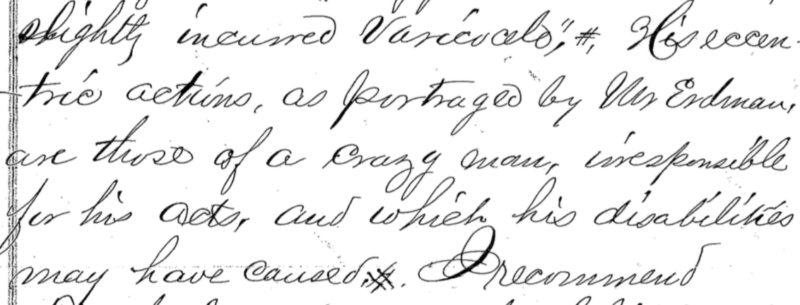 slightly incurred Varicocele", #. His eccen-
tric actions, as portrayed by Mr Erdman,
are those of a crazy man, irresponsible
for his acts, and which his disabilities
may have caused, #. I recommend